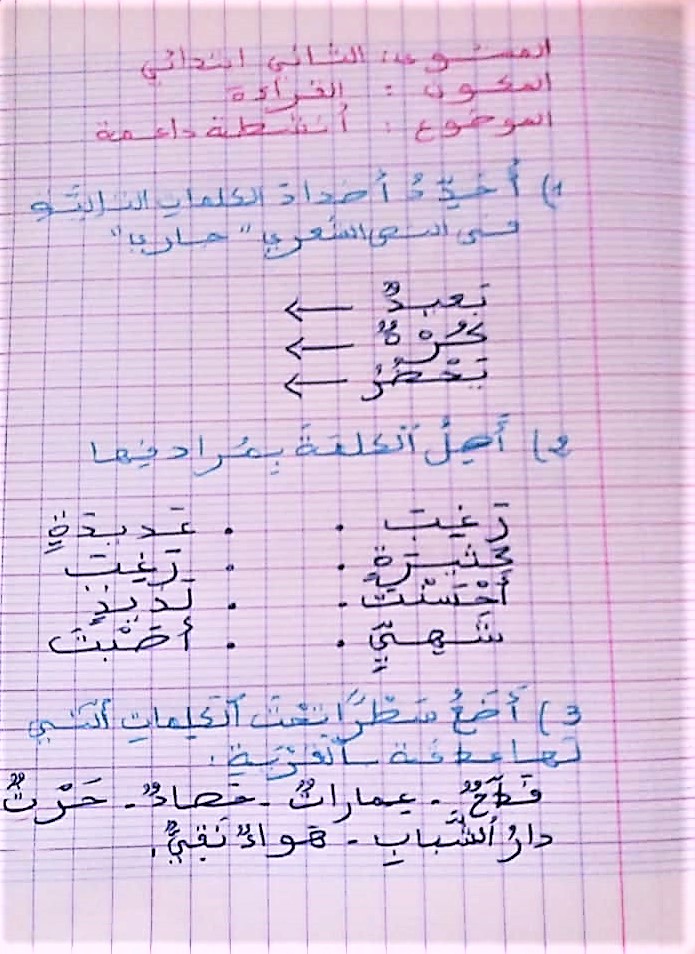 المستوى: الثاني ابتدائي
المكون : القراءة
الموضوع : أنشطة داعمة
1) أُحَدِّدُ أضدادَ الكلماتِ التاليةِ
في النص الشعري "جاري"
بَعيدٌ ←
كُرْهٌ ←
يَحْضُرُ ←
2) أَصِلُ ٱلكلمةَ بِمُرادفِها
رَغِيبَ . . عَديدَةٍ
كَثيرَةٍ . . رَغِبْتَ
أَحْسَنْتَ . . لَذيذٍ
شَهِيٍّ . . أَصَبْتَ
3) أَضَعُ سَطْرًا تَحْتَ ٱلْكَلِماتِ ٱلَّتي
لَها علاقة بـٱلْقَرْيَةِ:
فَلاّحٌ - عِماراتٌ - حَصادٌ - حَرْثٌ
دارُ ٱلشَّبابِ - هَواءٌ نَقِيٌّ.